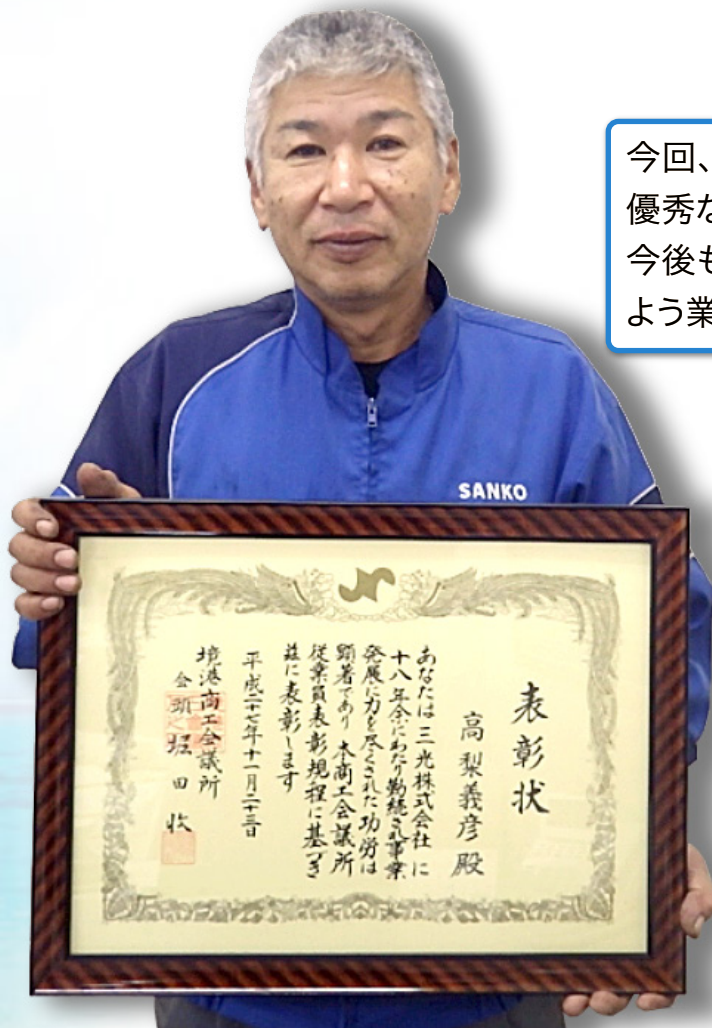 今回、
優秀な
今後も
よう業
SANKO
表彰状
高梨義彦 殿
あなたは三光株式会社に
十八年余にわたり勤続され事業
発展に力を尽くされた功労は
顕著であり 本商工会議所
従業員表彰規程に基づき
茲に表彰します
平成二十七年十一月二十三日
境港商工会議所
会頭 堀田收